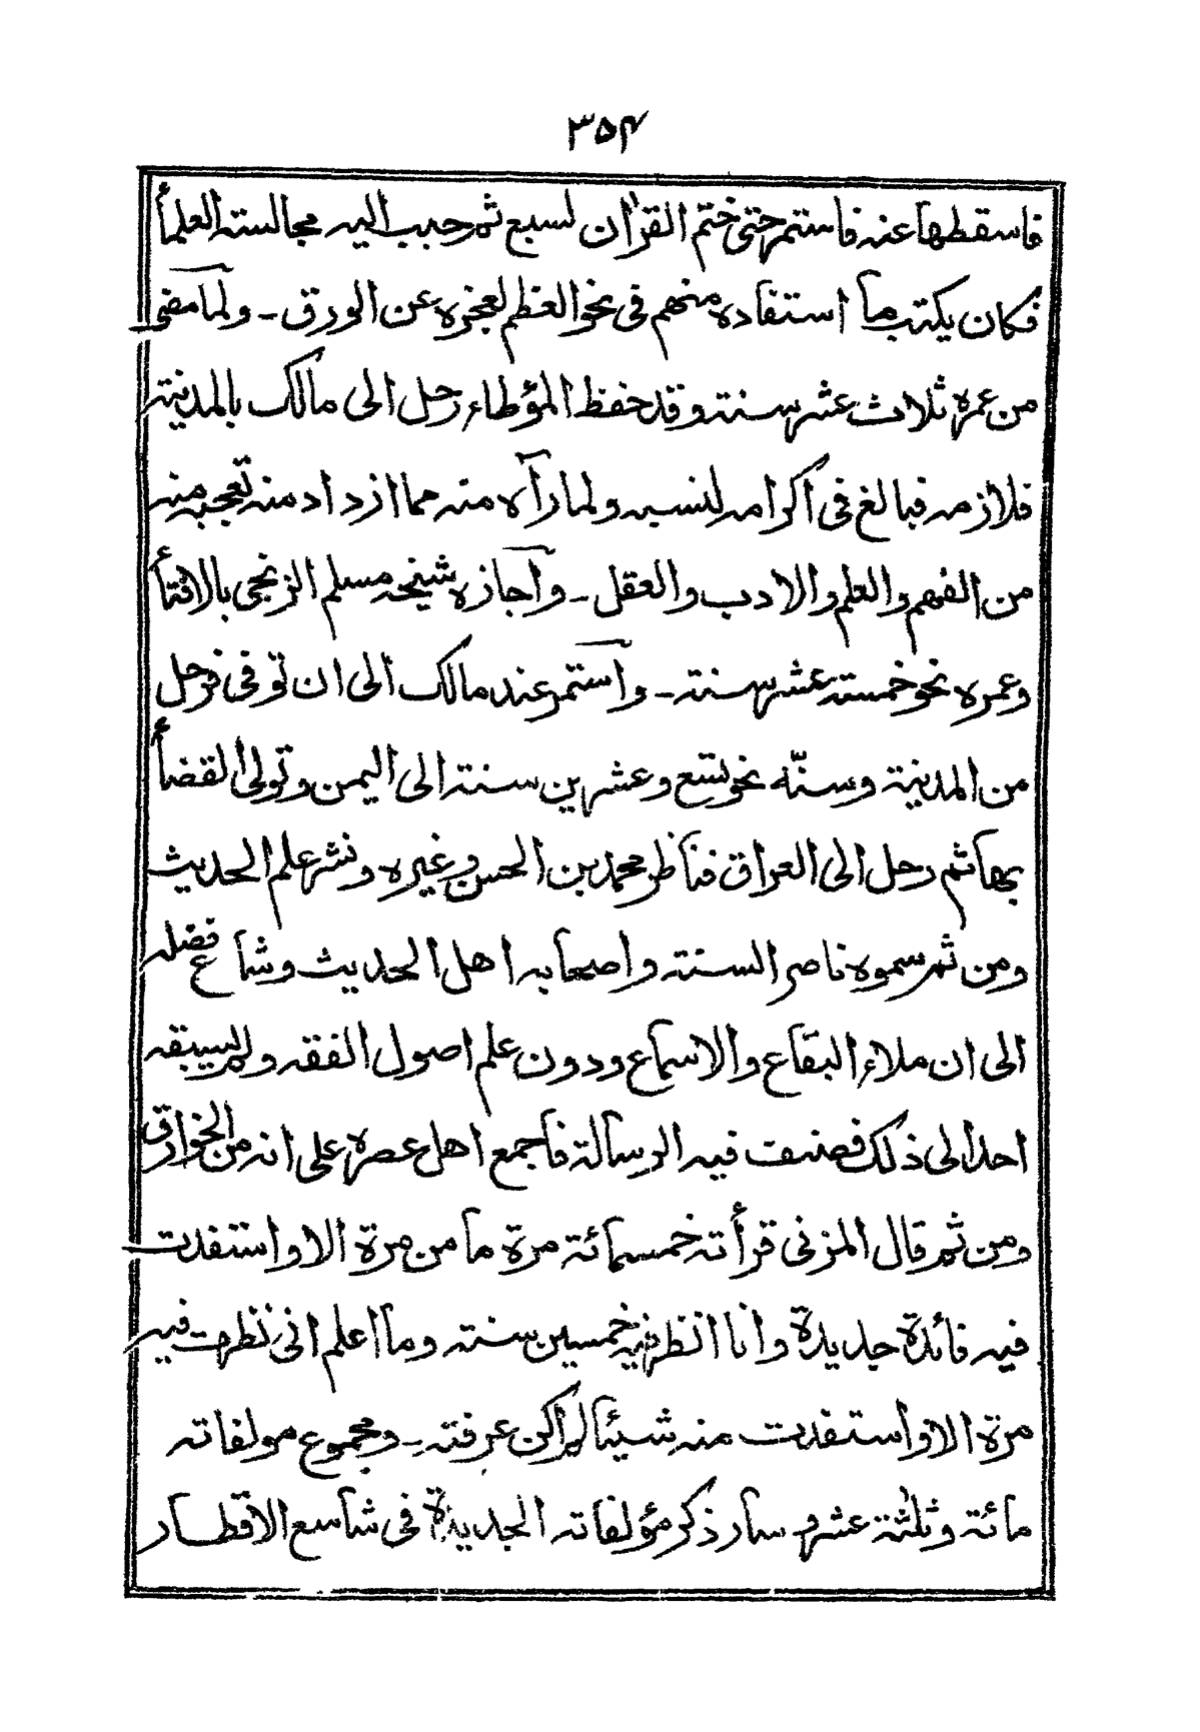 ۳۵۴
فاسقطها عنه فاستمر حتى ختم القرأن لسبع ثم حبب اليه مجالسته العلمأ
فكان يكتب ما استفاده منهم فى نحو العظم لعجزه عن الورق ۔ ولما مضى
من عمره ثلاث عشر سنته وقد حفظ المؤطاء رحل الى مالك بالمدينته
فلازمه فبالغ فى اكرامه لنسبه ولما رآه منه مما ازداد منه تعجبه منه
من الفهم والعلم والادب والعقل ۔ وآجازه شيخه مسلم الزنجى بالافتأ
وعمره نحو خمسته عشر سنته ۔ وآستمر عند مالك الى ان توفى فرحل
من المدينة وسنّه نحو تسع وعشرين سنته الى اليمن وتولى القضأ
بها ثم رحل الى العراق فناظر محمد بن الحسن وغيره ونشر علم الحديث
ومن ثم سموه ناصر السنته واصحابه اهل الحديث وشاع فضله
الى ان ملاء البقاع والاسماع ودون علم اصول الفقه ولم يسبقه
احد الى ذلك فصنف فيه الرسالة فاجمع اهل عصره على انه من الخوارق
ومن ثم قال المزنى قرأته خمسمائة مرة ما من مرة الا واستفدت
فيه فائدة جديدة وانا انظر فيه خمسين سنته وما اعلم انى نظرت فيه
مرة الا واستفدت منه شيئا لم اكن عرفته ۔ ومجموع مولفاته
مائة وثلثة عشر وسار ذكر مؤلفاته الجديدة فى شاسع الاقطار